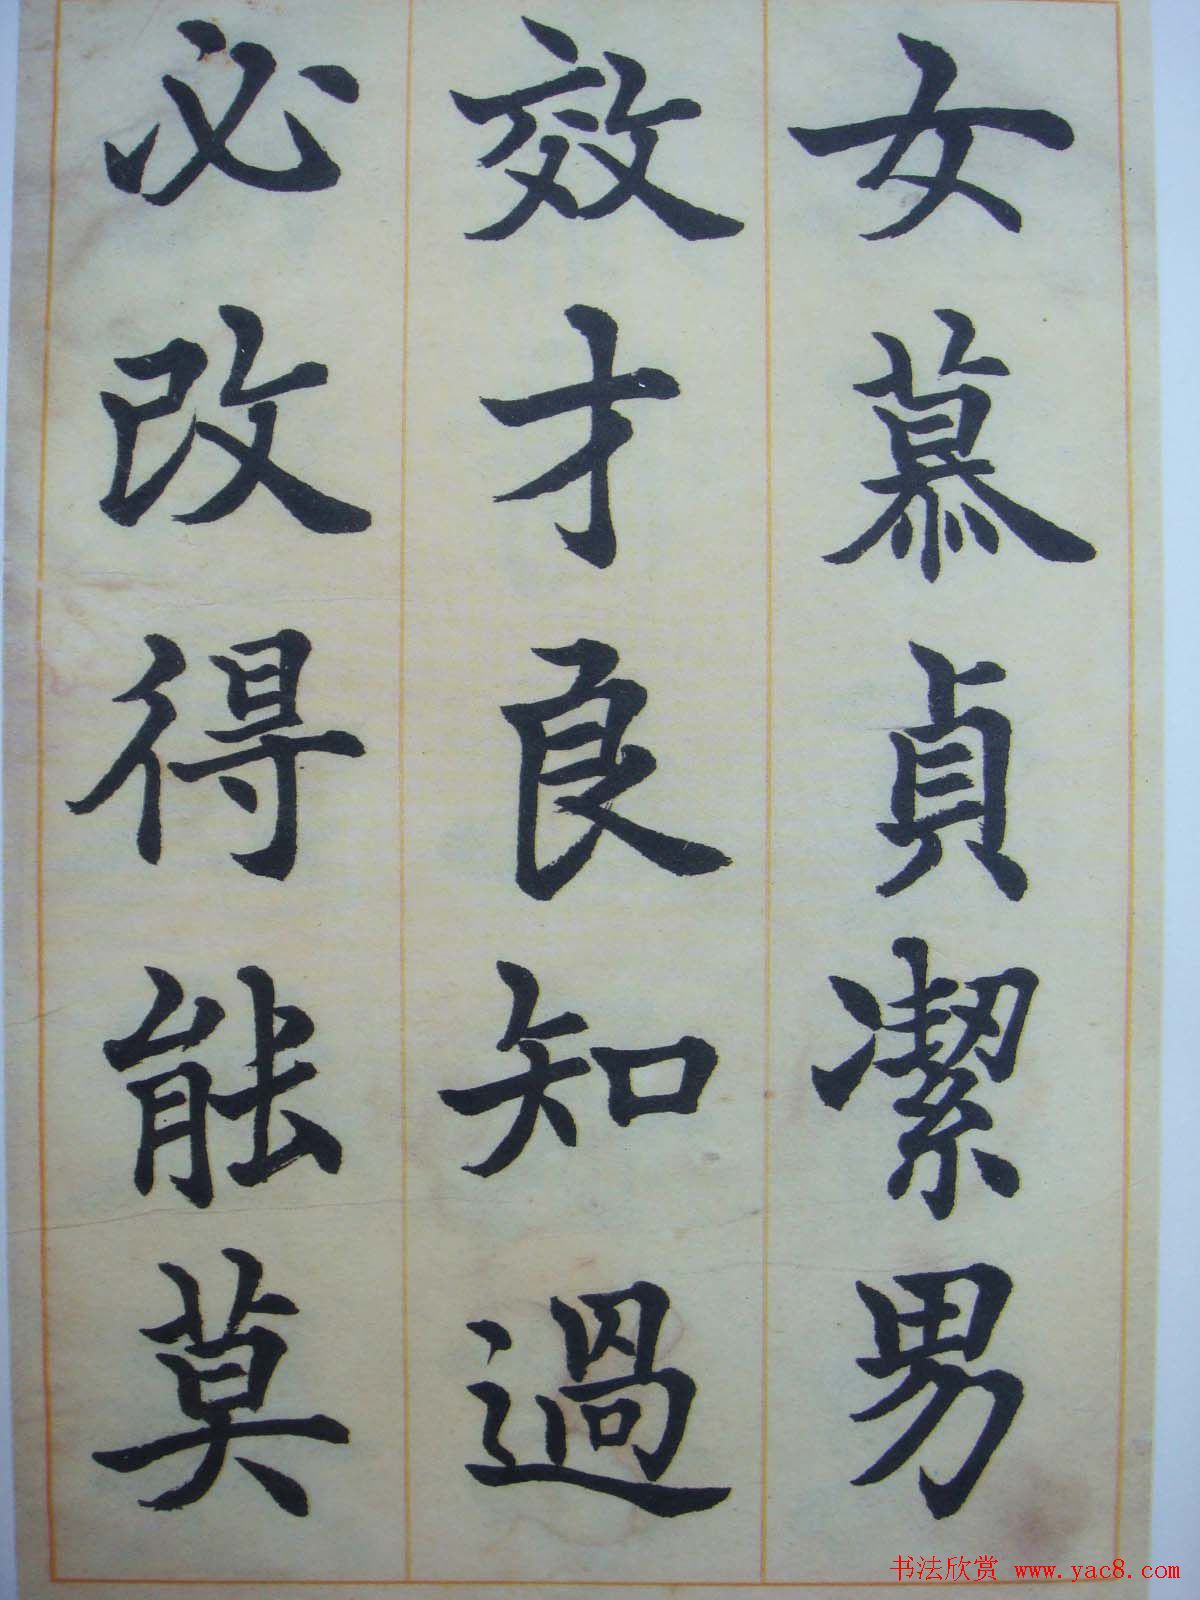 女慕貞潔男
效才良知過
必改得能莫
书法欣赏 www.yac8.com